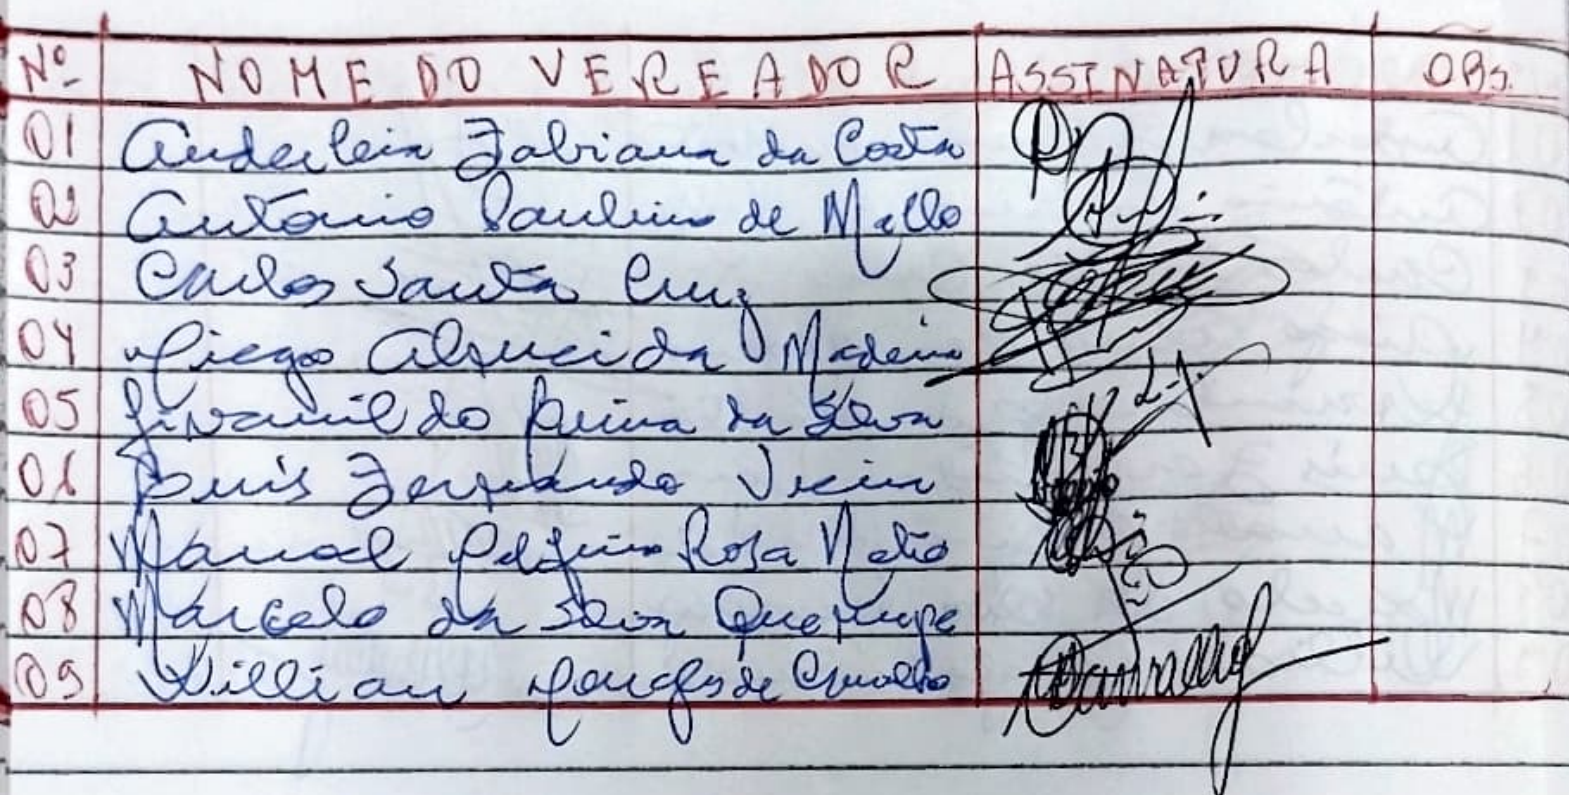 Nº NOME DO VEREADOR ASSINATURA OBS.
01 Anderleia Fabiana da Costa
02 Antonio Paulino de Mello
03 Carlos Santa Cruz
04 Diego Almeida Madeira
05 Jivanildo da Silva
06 Luis Fernando Vieira
07 Manoel Rosa Neto
08 Marcelo da Silva
09 Willian de Carvalho